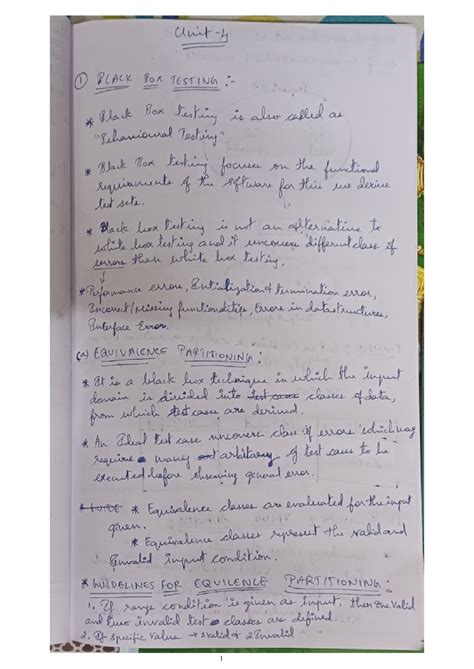 Unit-4
① BLACK BOX TESTING :-
* Black Box testing is also called as
"Behavioural Testing"
* Black Box testing focuses on the functional
requirements of the software for this we derive
test sets.
* Black box testing is not an alternative to
white box testing and it uncovers different class of
errors than white box testing.
↓
* Performance errors, Initialization & termination error,
Incorrect/Missing functionalities, Errors in datastructures,
Interface Error.
(a) EQUIVALENCE PARTITIONING :
* It is a black box technique in which the input
domain is divided into test cases classes of data,
from which test cases are derived.
* An Ideal test case uncovers class of errors which may
require many arbitrary of test cases to be
executed before observing general error.
* GUIDE * Equivalence classes are evaluated for the input
given.
* Equivalence classes represent the valid and
Invalid input condition.
* GUIDELINES FOR EQUILENCE PARTITIONING :
1. If range condition is given as input, then one valid
and two invalid test classes are defined.
2. If specific value → 1 valid & 2 Invalid " "
1